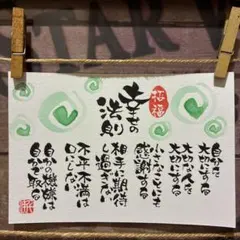 招福
幸せの
法則
自分を
大切にする
大切な人を
大切にする
小さなことにも
感謝する
相手に期待
し過ぎない
不平不満は
口にしない
自分の機嫌は
自分で取る
STAR W